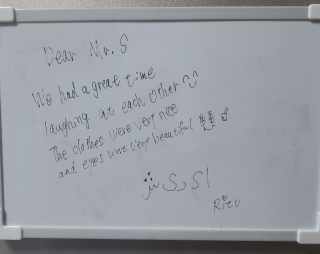 Dear Mr. S
We had a great time
laughing at each other
The clothes were very nice
and eyes were very beautiful